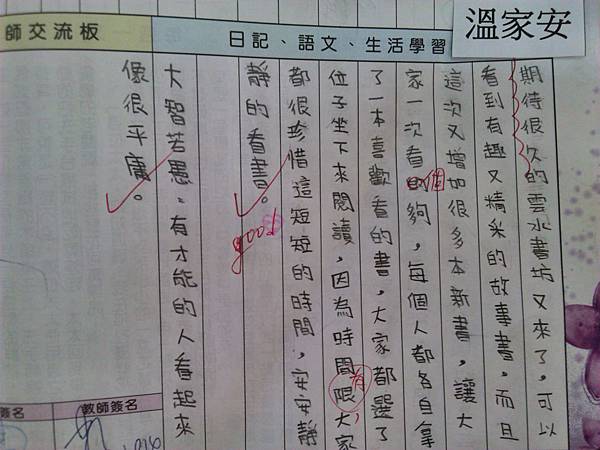 溫家安
日記、語文、生活學習
師交流板
期待很久的雲水書坊又來了,可以
看到有趣又精采的故事書,而且
這次又增加很多本新書,讓大
家一次看個夠,每個人都各自拿
了一本喜歡看的書,大家都選了
位子坐下來閱讀,因為時間有限,大家
都很珍惜這短短的時間,安安靜
靜的看書。
good
大智若愚:有才能的人看起來
像很平庸。
教師簽名
簽名